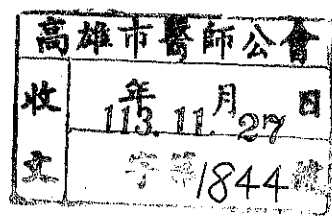 高雄市醫師公會
收文
年 月 日
113.11.27
字第1844號